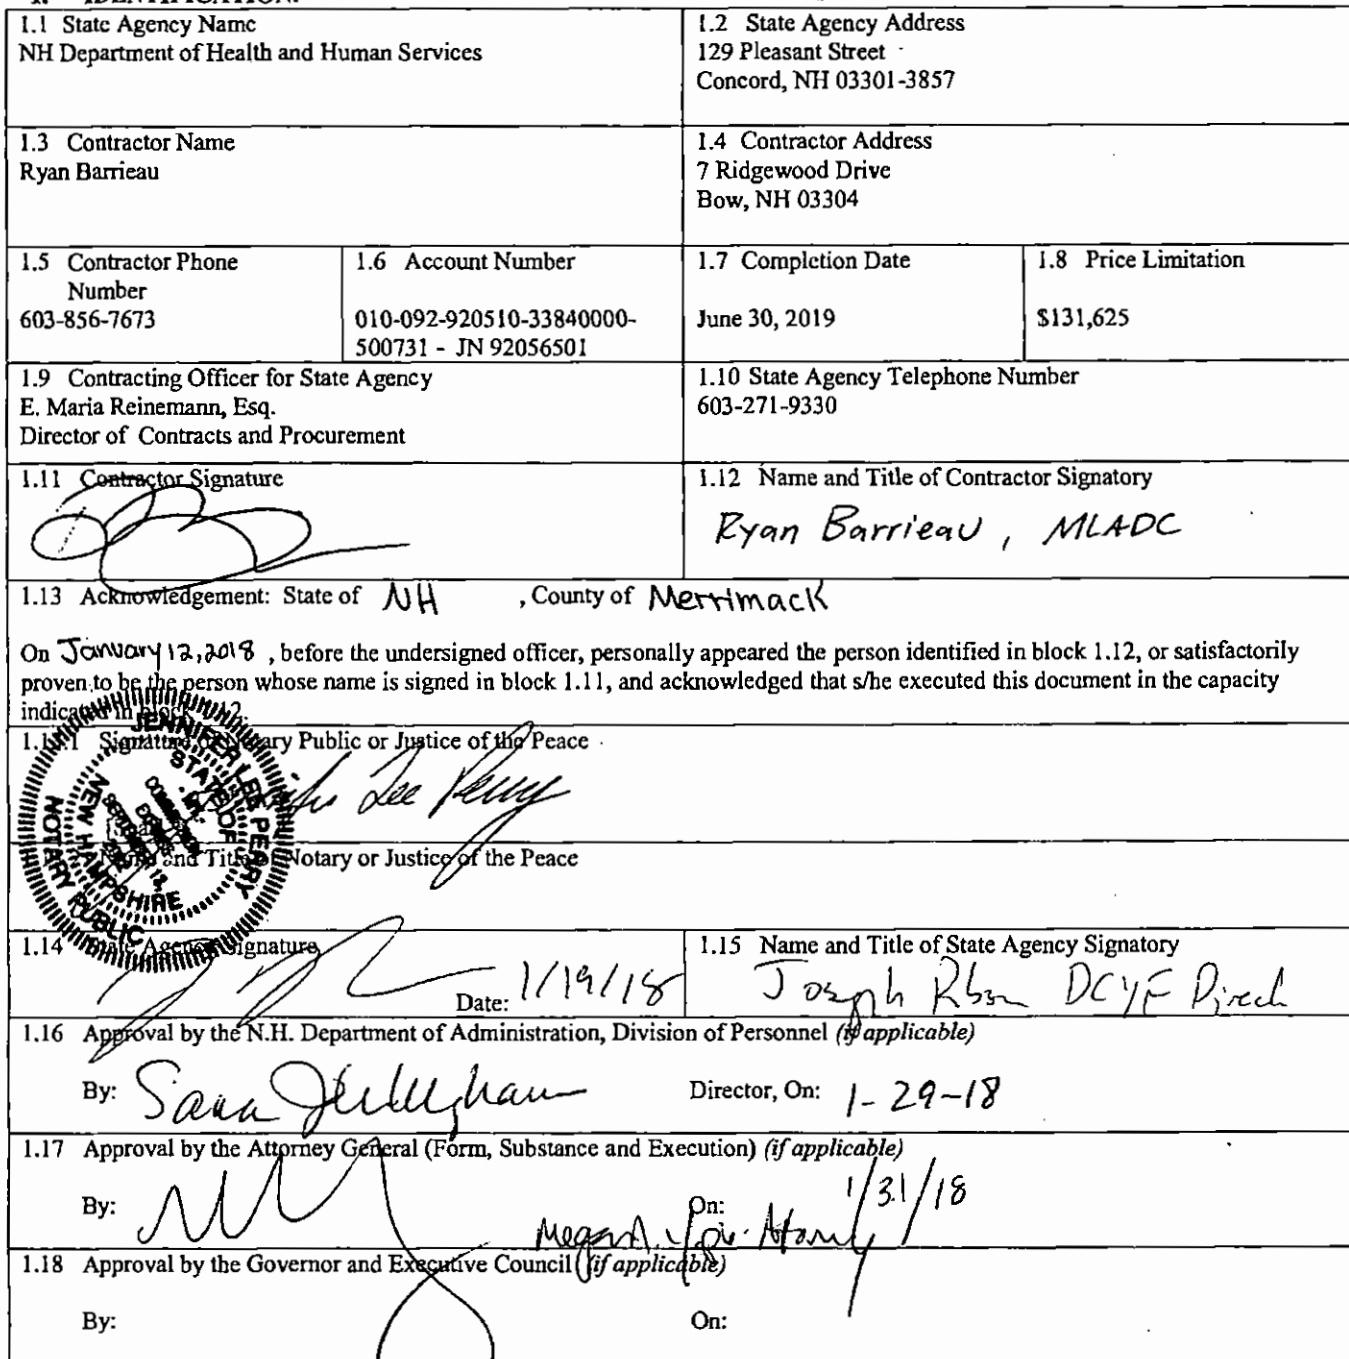 1. IDENTIFICATION.
1.1 State Agency Name
NH Department of Health and Human Services
1.2 State Agency Address
129 Pleasant Street
Concord, NH 03301-3857
1.3 Contractor Name
Ryan Barrieau
1.4 Contractor Address
7 Ridgewood Drive
Bow, NH 03304
1.5 Contractor Phone
Number
603-856-7673
1.6 Account Number
010-092-920510-33840000-
500731 - JN 92056501
1.7 Completion Date
June 30, 2019
1.8 Price Limitation
$131,625
1.9 Contracting Officer for State Agency
E. Maria Reinemann, Esq.
Director of Contracts and Procurement
1.10 State Agency Telephone Number
603-271-9330
1.11 Contractor Signature
1.12 Name and Title of Contractor Signatory
Ryan Barrieau, MLADC
1.13 Acknowledgement: State of NH , County of Merrimack
On January 12, 2018 , before the undersigned officer, personally appeared the person identified in block 1.12, or satisfactorily
proven to be the person whose name is signed in block 1.11, and acknowledged that s/he executed this document in the capacity
indicated in block 1.12.
1.13.1 Signature of Notary Public or Justice of the Peace
Lee Perry
JENNIFER LEE PERRY
STATE OF
NEW HAMPSHIRE
NOTARY PUBLIC
Name and Title of Notary or Justice of the Peace
1.14 State Agency Signature
Date: 1/19/18
1.15 Name and Title of State Agency Signatory
Joseph DCYF
1.16 Approval by the N.H. Department of Administration, Division of Personnel (if applicable)
By: Director, On: 1-29-18
1.17 Approval by the Attorney General (Form, Substance and Execution) (if applicable)
By: On: 1/31/18
Megan A.
1.18 Approval by the Governor and Executive Council (if applicable)
By: On: